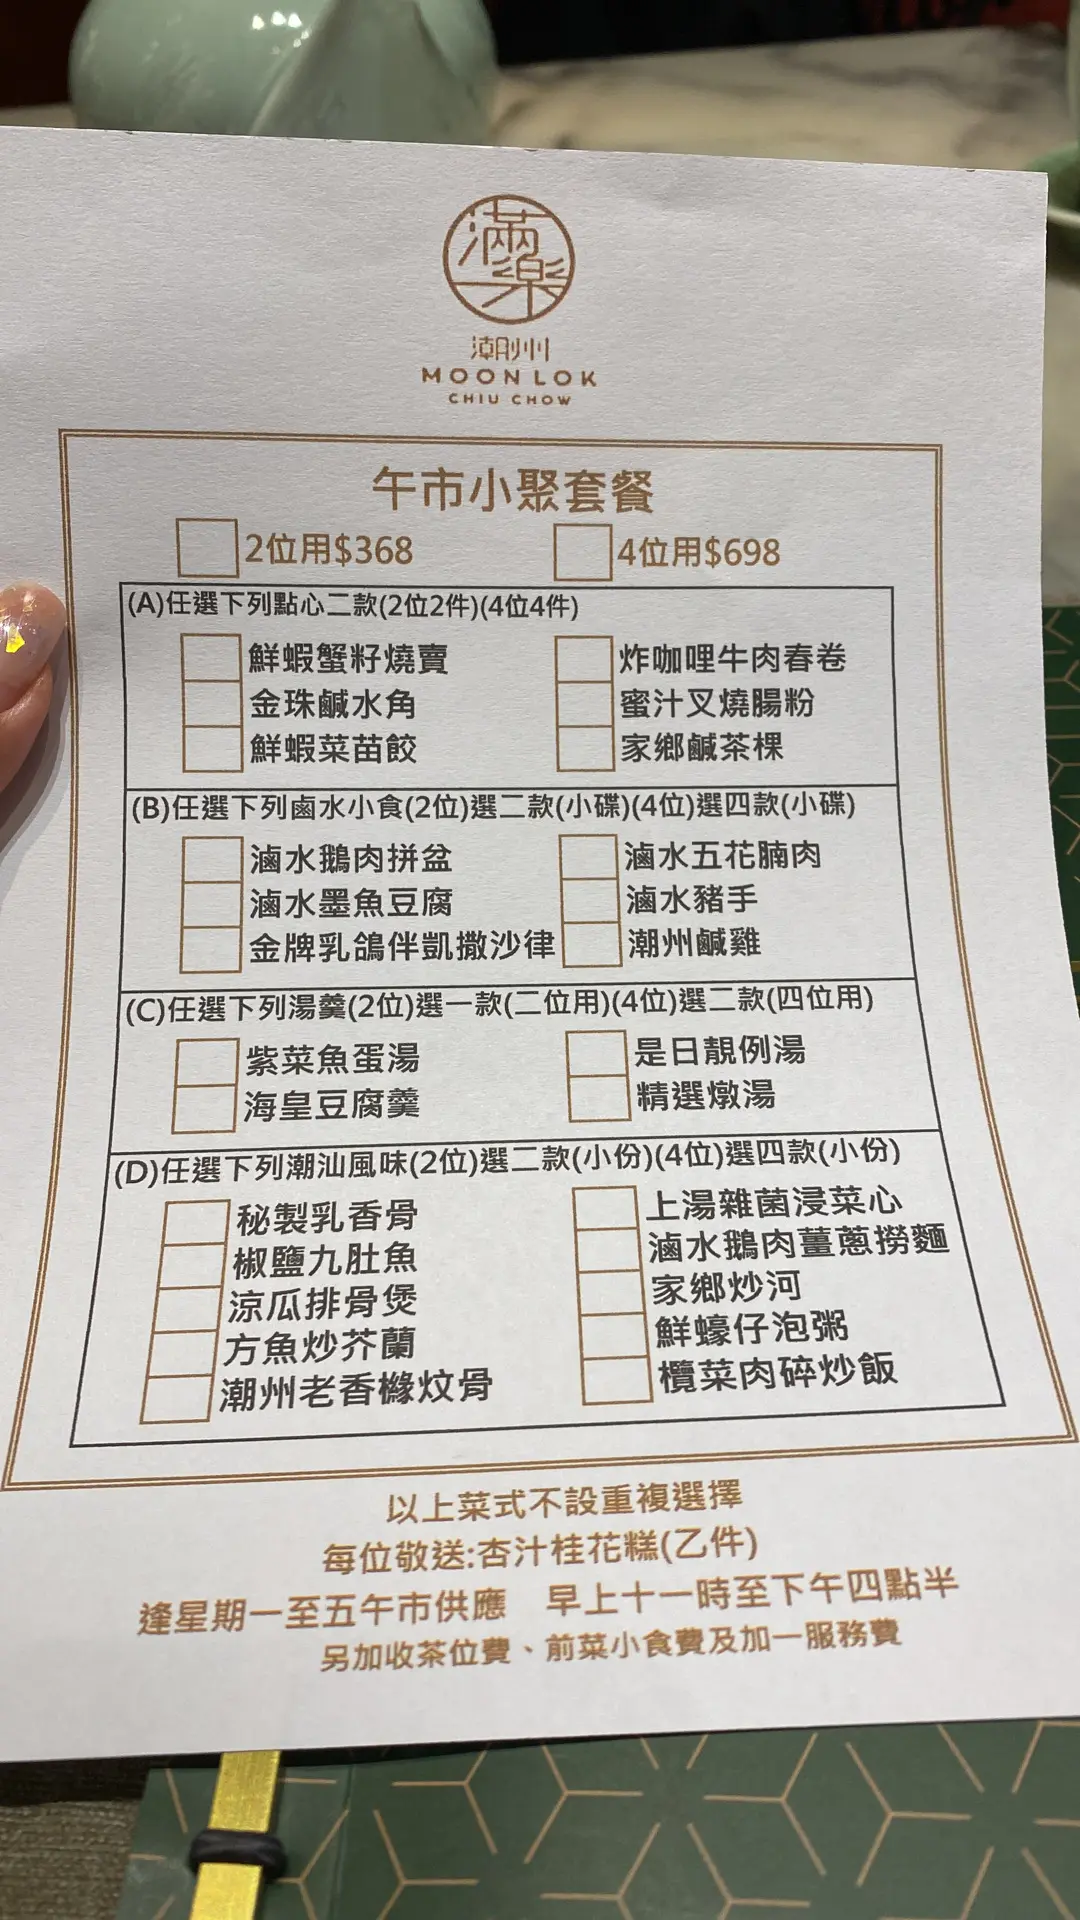 滿樂
潮州
MOON LOK
CHIU CHOW
午市小聚套餐
2位用$368 4位用$698
(A)任選下列點心二款(2位2件)(4位4件)
鮮蝦蟹籽燒賣 炸咖哩牛肉春卷
金珠鹹水角 蜜汁叉燒腸粉
鮮蝦菜苗餃 家鄉鹹茶粿
(B)任選下列鹵水小食(2位)選二款(小碟)(4位)選四款(小碟)
滷水鵝肉拼盆 滷水五花腩肉
滷水墨魚豆腐 滷水豬手
金牌乳鴿伴凱撒沙律 潮州鹹雞
(C)任選下列湯羹(2位)選一款(二位用)(4位)選二款(四位用)
紫菜魚蛋湯 是日靚例湯
海皇豆腐羹 精選燉湯
(D)任選下列潮汕風味(2位)選二款(小份)(4位)選四款(小份)
秘製乳香骨 上湯雜菌浸菜心
椒鹽九肚魚 滷水鵝肉薑蔥撈麵
涼瓜排骨煲 家鄉炒河
方魚炒芥蘭 鮮蠔仔泡粥
潮州老香櫞炆骨 欖菜肉碎炒飯
以上菜式不設重複選擇
每位敬送:杏汁桂花糕(乙件)
逢星期一至五午市供應 早上十一時至下午四點半
另加收茶位費、前菜小食費及加一服務費